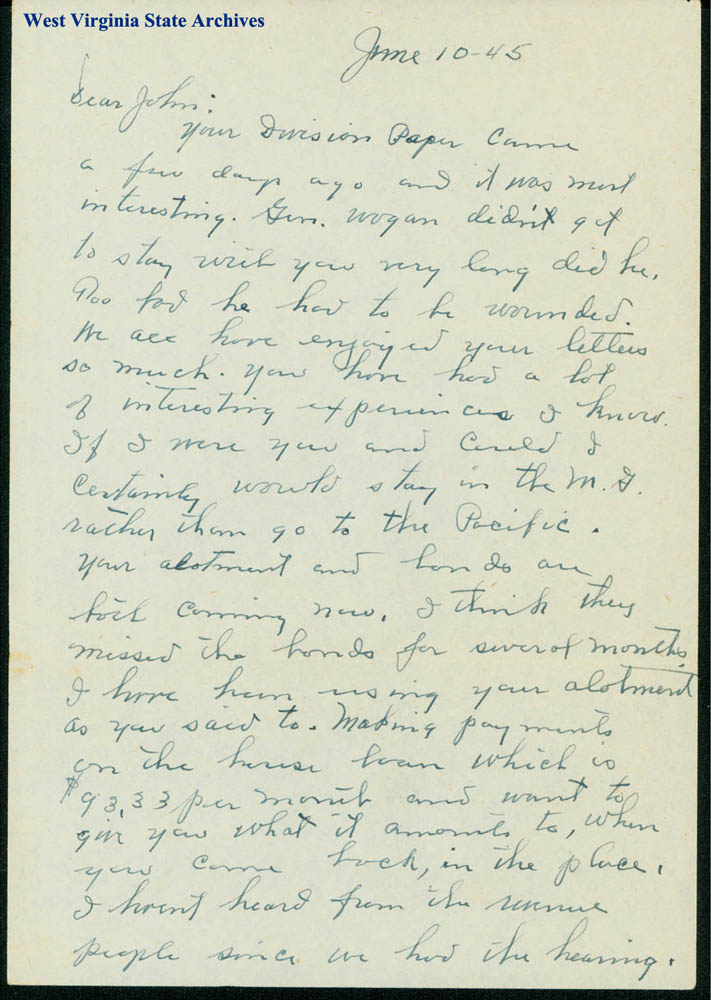 West Virginia State Archives
June 10-45
Dear John:
Your Division Paper Came
a few days ago and it was most
interesting. Gen. Wogan didn't get
to stay with you very long did he.
Too bad he had to be wounded.
We all have enjoyed your letters
so much. You have had a lot
of interesting experiences I know.
If I were you and Could I
Certainly would stay in the M. G.
rather than go to the Pacific.
Your alotment and bonds are
both Coming now. I think they
missed the bonds for several months.
I have been using your alotment
as you said to. Making payments
on the house loan which is
$93.33 per month and want to
give you what it amonts to, when
you come back, in the place.
I havent heard from the revenue
people since we had the hearing.